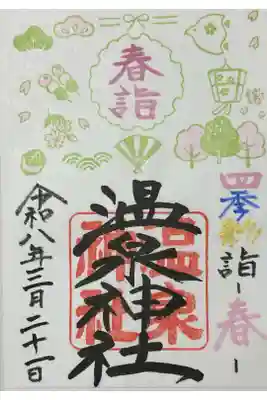 春詣
四季詣-春-
温泉神社
温泉神社
令和八年三月二十一日